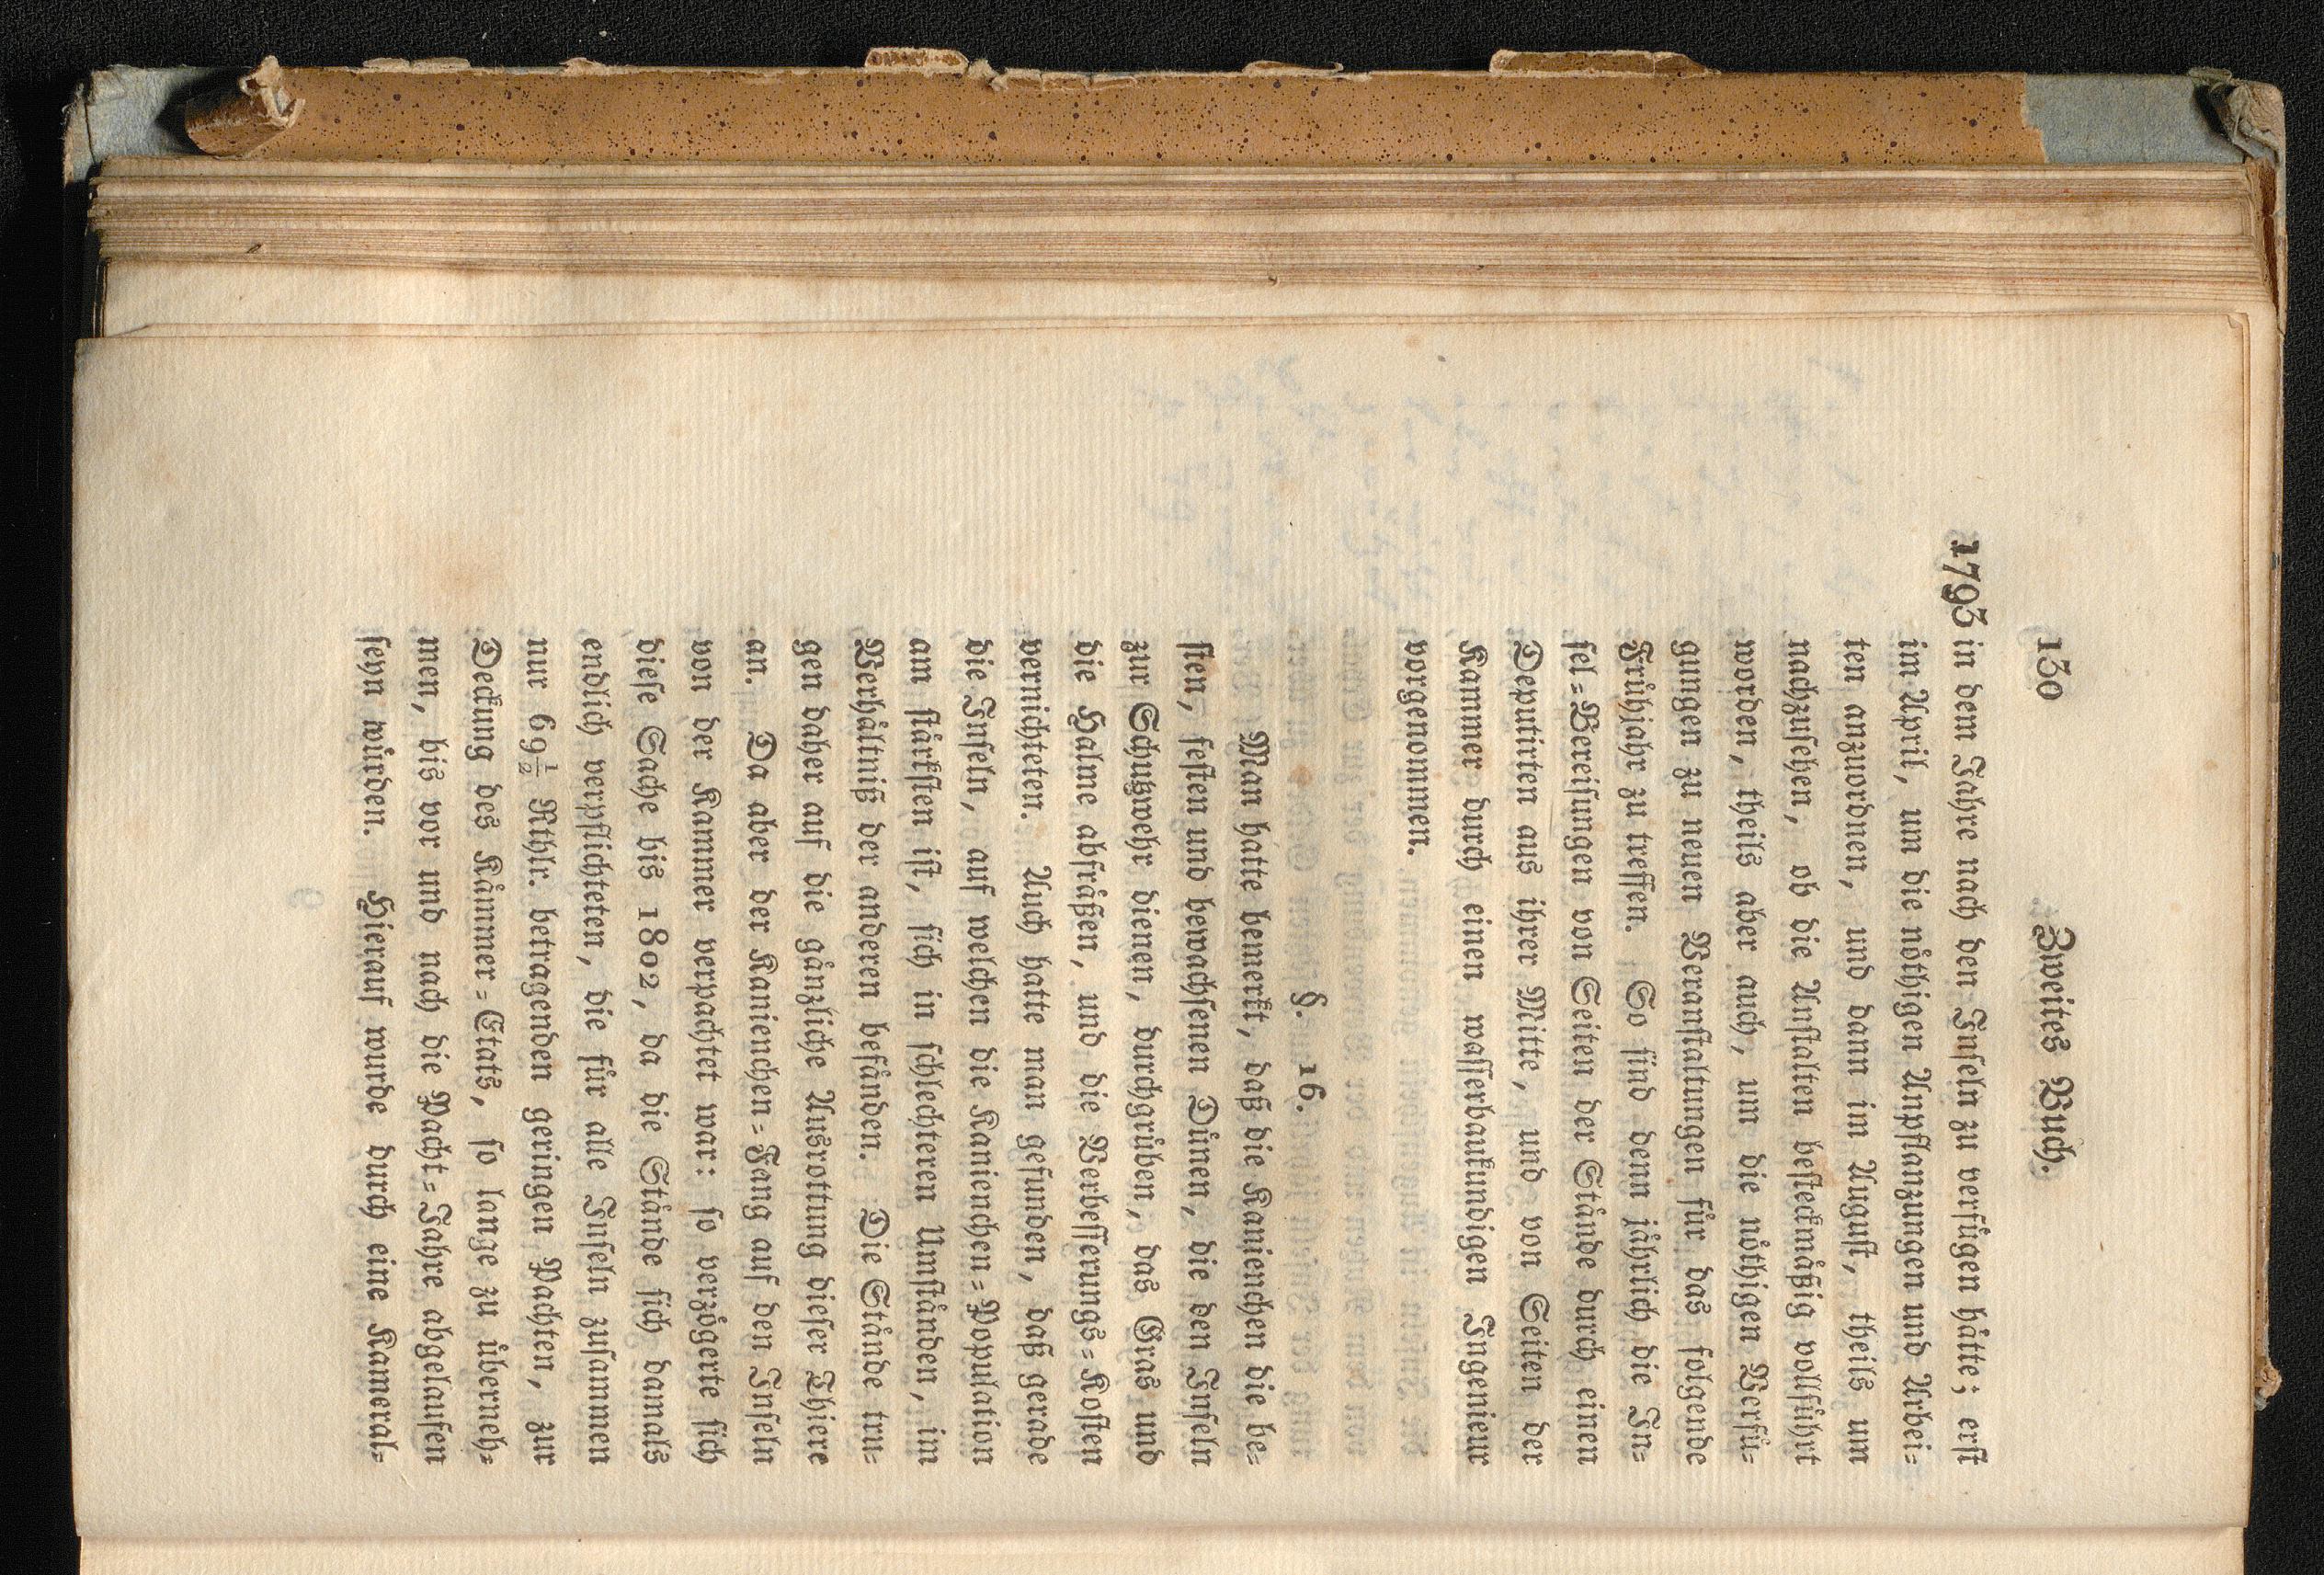 130 Zweites Buch.
1793 in dem Jahre nach den Inseln zu verfügen hätte; erst
im April, um die nöthigen Anpflanzungen und Arbei=
ten anzuordnen, und dann im August, theils um
nachzusehen, ob die Anstalten besteckmäßig vollführt
worden, theils aber auch, um die nöthigen Verfü=
gungen zu neuen Veranstaltungen für das folgende
Frühjahr zu treffen. So sind denn jährlich die In=
sel=Bereisungen von Seiten der Stände durch einen
Deputirten aus ihrer Mitte, und von Seiten der
Kammer durch einen wasserbaukundigen Ingenieur
vorgenommen.
§. 16.
Man hatte bemerkt, daß die Kanienchen die be=
sten, festen und bewachsenen Dünen, die den Inseln
zur Schutzwehr dienen, durchgrüben, das Gras und
die Halme abfräßen, und die Verbesserungs=Kosten
vernichteten. Auch hatte man gefunden, daß gerade
die Inseln, auf welchen die Kanienchen=Population
am stärksten ist, sich in schlechteren Umständen, im
Verhältniß der anderen befänden. Die Stände tru=
gen daher auf die gänzliche Ausrottung dieser Thiere
an. Da aber der Kanienchen=Fang auf den Inseln
von der Kammer verpachtet war: so verzögerte sich
diese Sache bis 1802, da die Stände sich damals
endlich verpflichteten, die für alle Inseln zusammen
nur 69½ Rthlr. betragenden geringen Pachten, zur
Deckung des Kammer=Etats, so lange zu überneh=
men, bis vor und nach die Pacht=Jahre abgelaufen
seyn würden. Hierauf wurde durch eine Kameral=